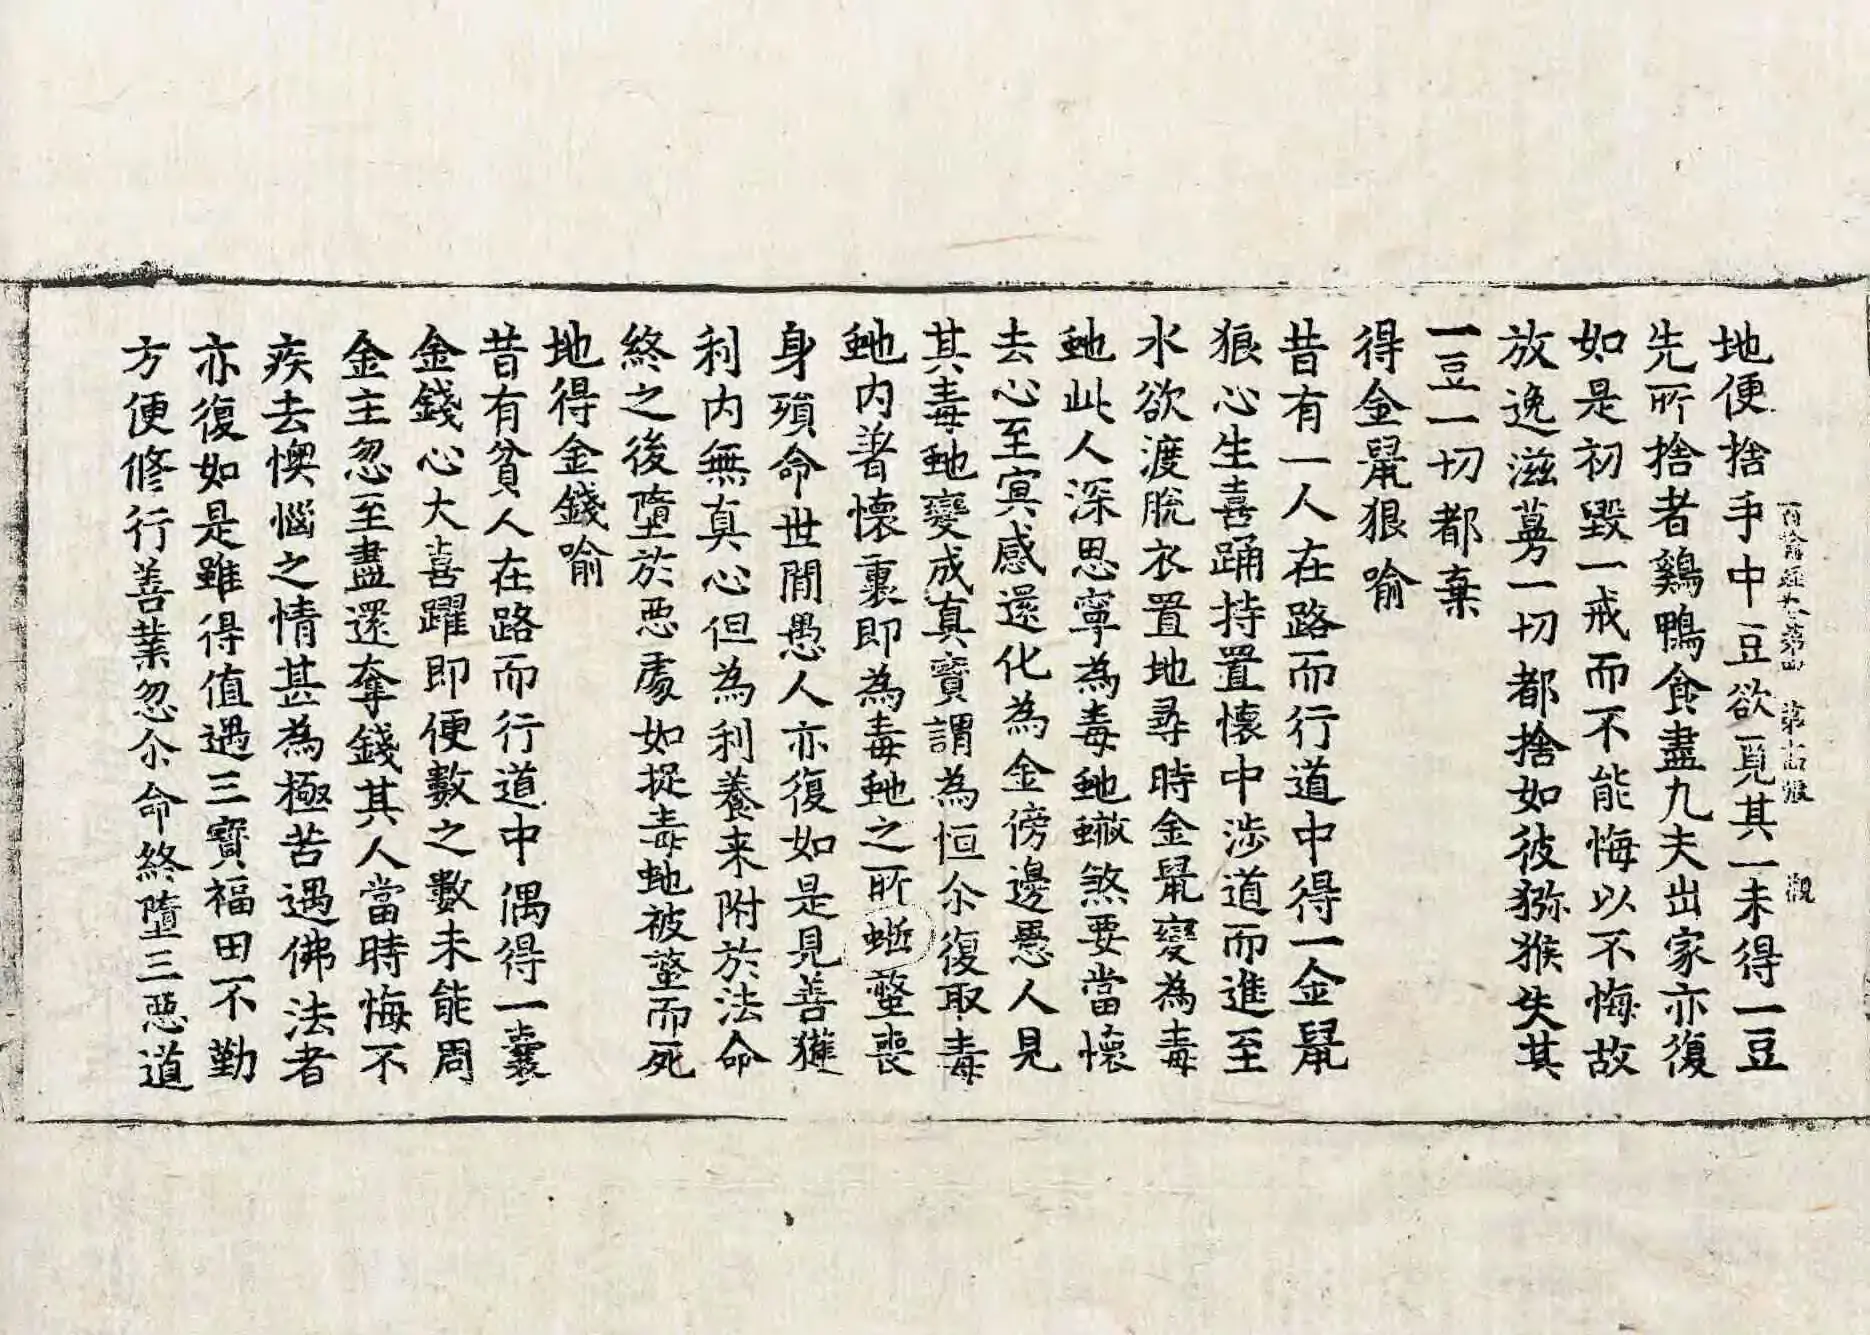 百喻經卷第四 第十六張 觀
地便捨手中豆欲覓其一未得一豆
先所捨者鷄鴨食盡凡夫出家亦復
如是初毀一戒而不能悔以不悔故
放逸滋蔓一切都捨如彼獼猴失其
一豆一切都棄
得金䑕狼喻
昔有一人在路而行道中得一金䑕
狼心生喜踊持置懷中涉道而進至
水欲渡脫衣置地尋時金䑕變為毒
虵此人深思寧為毒虵螫煞要當懷
去心至冥感還化為金傍邊惡人見
其毒虵變成真寶謂為恒尒復取毒
虵內著懷裏即為毒虵之所蜇螫喪
身殞命世間愚人亦復如是見善獲
利內無真心但為利養来附於法命
終之後墮於惡處如捉毒虵被螫而死
地得金錢喻
昔有貧人在路而行道中偶得一囊
金錢心大喜躍即便數之數未能周
金主忽至盡還奪錢其人當時悔不
疾去懊惱之情甚為極苦遇佛法者
亦復如是雖得值遇三寶福田不勤
方便修行善業忽尒命終墮三惡道